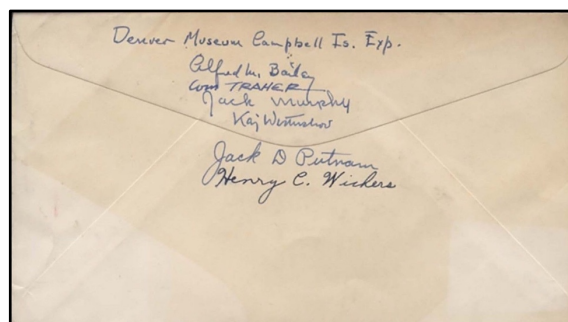 Denver Museum Campbell Is. Exp.
Alfred M. Bailey
TRAHER
Jack Murphy
Kaj
Jack D Putnam
Henry C. Wichers